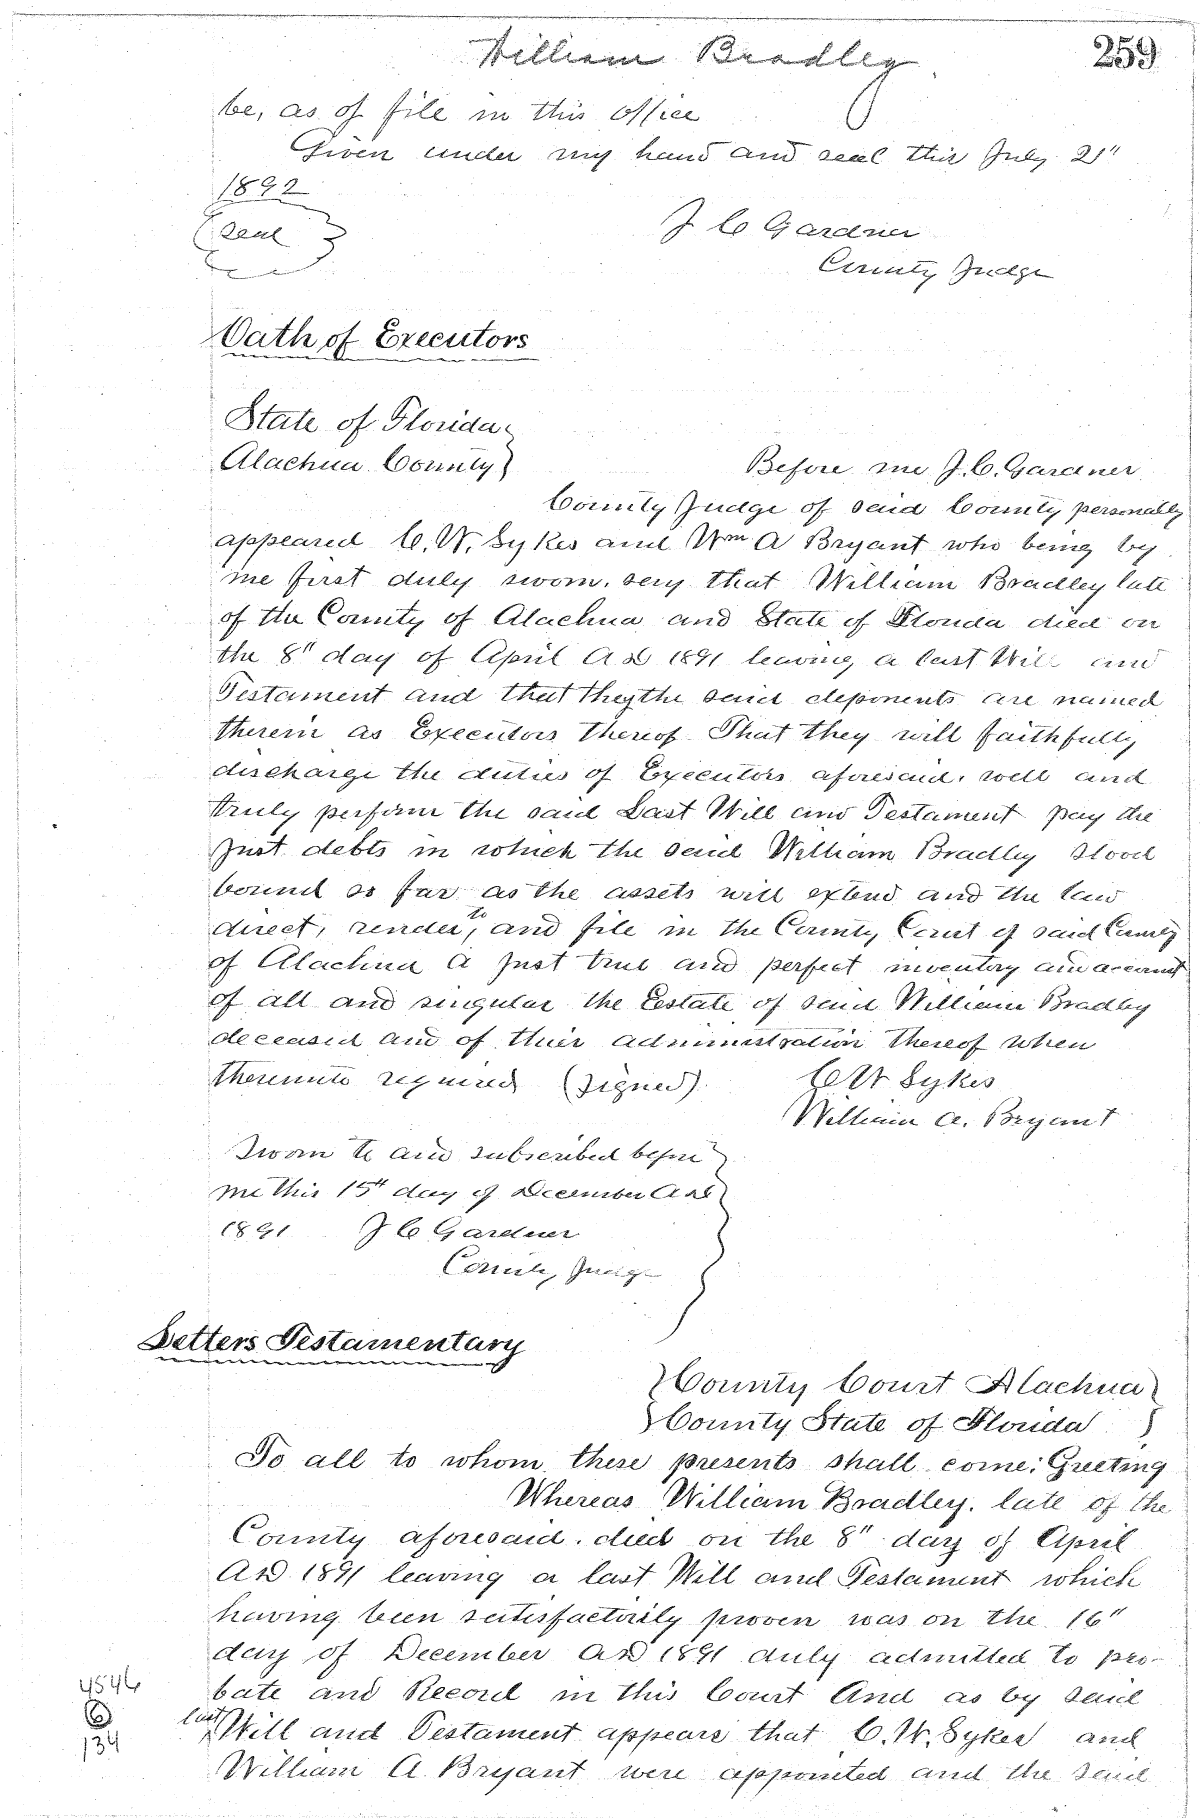 William Bradley
259
be, as of file in this office
Given under my hand and seal this July 21"
1892
(Seal)
J C Gardner
County Judge
Oath of Executors
State of Florida
Alachua County } Before me J. C. Gardner
County Judge of said County personally
appeared C. W. Sykes and Wm A Bryant who being by
me first duly sworn, say that William Bradley late
of the County of Alachua and State of Florida died on
the 8" day of April AD 1891 leaving a last Will and
Testament and that they the said deponents are named
therein as Executors thereof. That they will faithfully
discharge the duties of Executors aforesaid. well and
truly perform the said Last Will and Testament pay the
just debts in which the said William Bradley stood
bound so far as the assets will extend and the law
direct, render, to and file in the County Court of said County
of Alachua a just true and perfect inventory and account
of all and singular the Eestate of said William Bradley
deceased and of their administration thereof when
thereunto required (signed) C W Sykes
William A. Bryant
Sworn to and subscribed before
me this 15th day of December AD
1891 J C Gardner
County Judge
Letters Testamentary
County Court Alachua
County State of Florida
To all to whom these presents shall come: Greeting
Whereas William Bradley. late of the
County aforesaid. died on the 8" day of April
AD 1891 leaving a last Will and Testament which
having been satisfactorily proven was on the 16"
day of December AD 1891 duly admitted to pro-
4546
bate and Record in this Court And as by said
6
last Will and Testament appears that C. W. Sykes and
134
William A. Bryant were appointed and the said